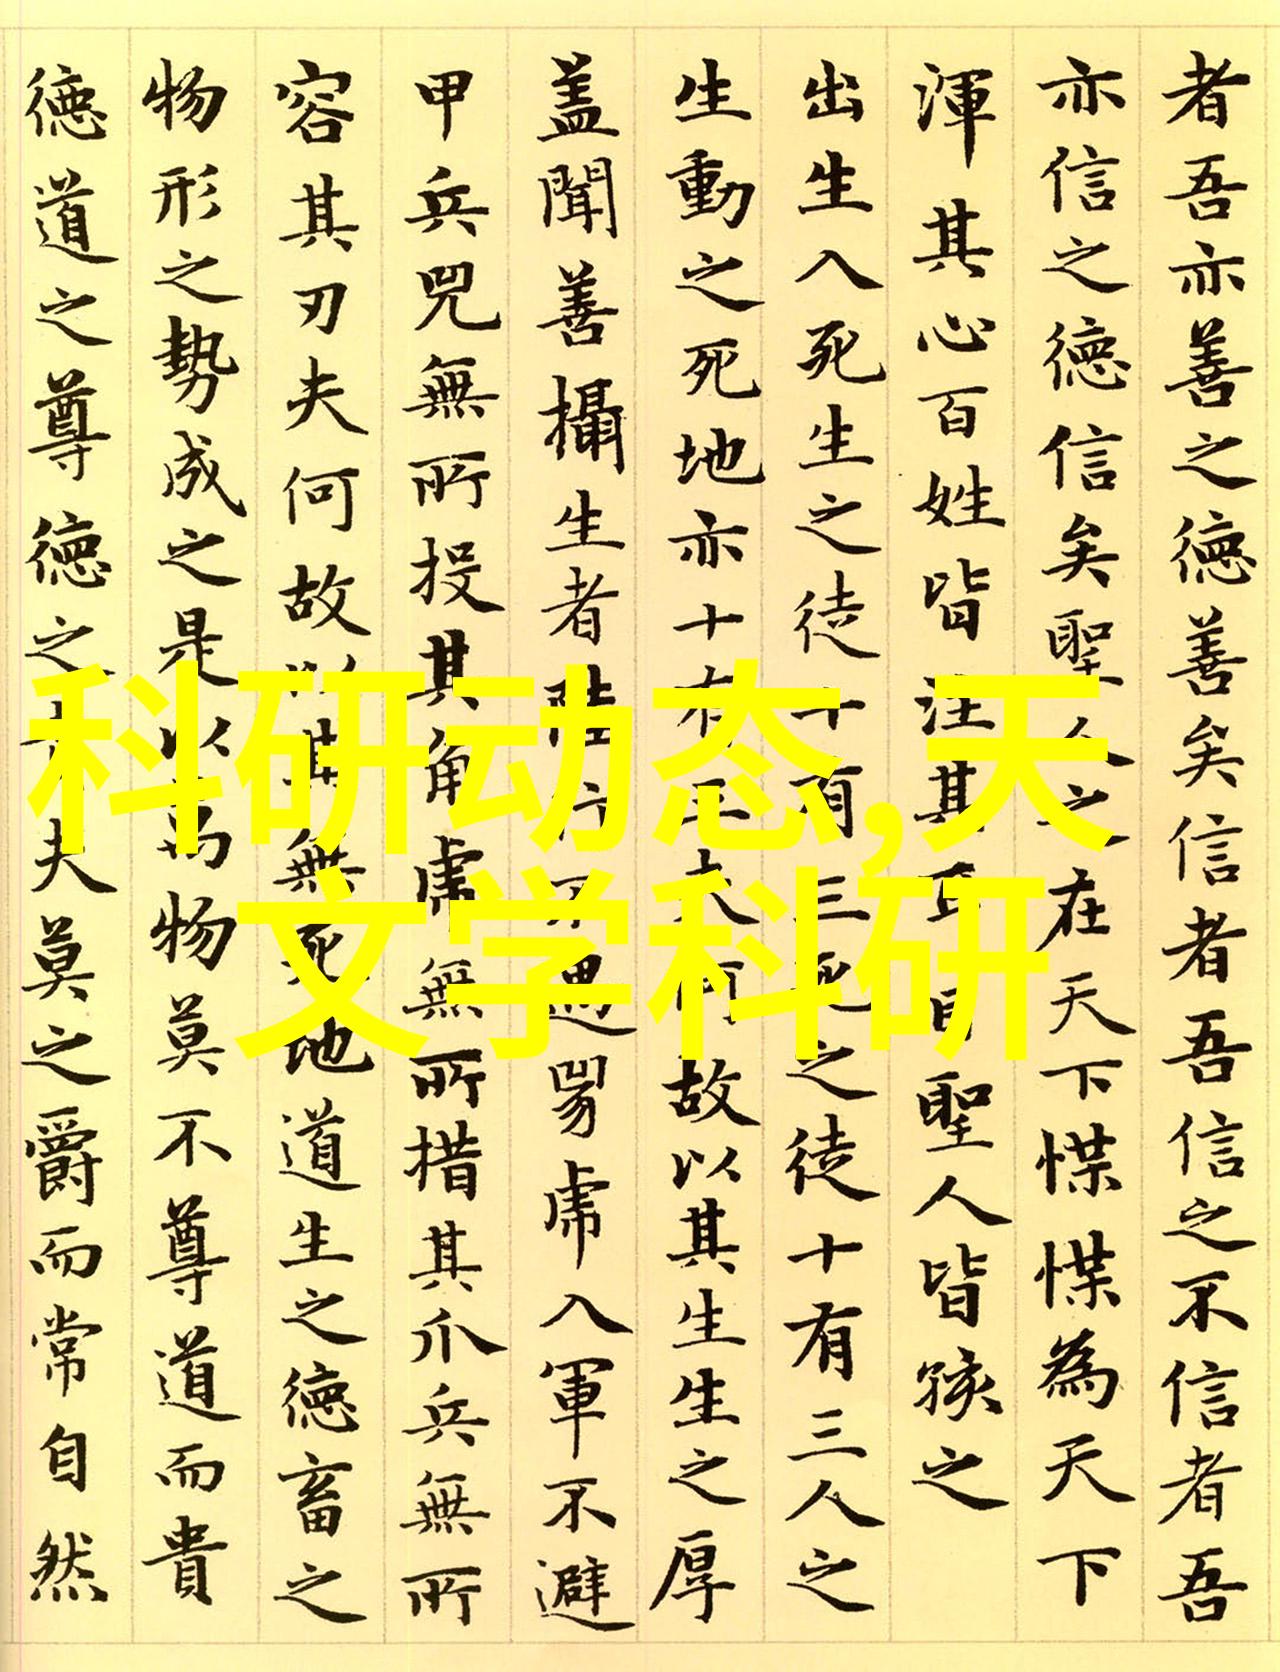 者吾亦善之德善矣信者吾信之不信者吾
亦信之德信矣聖人之在天下惵惵為天下
渾其心百姓皆注其耳目聖人皆孩之
出生入死生之徒十有三死之徒十有三人之
生動之死地亦十有三夫何故以其生生之厚
盖聞善攝生者陸行不遇兕虎入軍不避
甲兵兕無所投其角虎無所措其爪兵無所
容其刃夫何故以其無死地道生之德畜之
物形之勢成之是以萬物莫不尊道而貴
德道之尊德之夫莫之爵而常自然
科研动态,天
文学科研